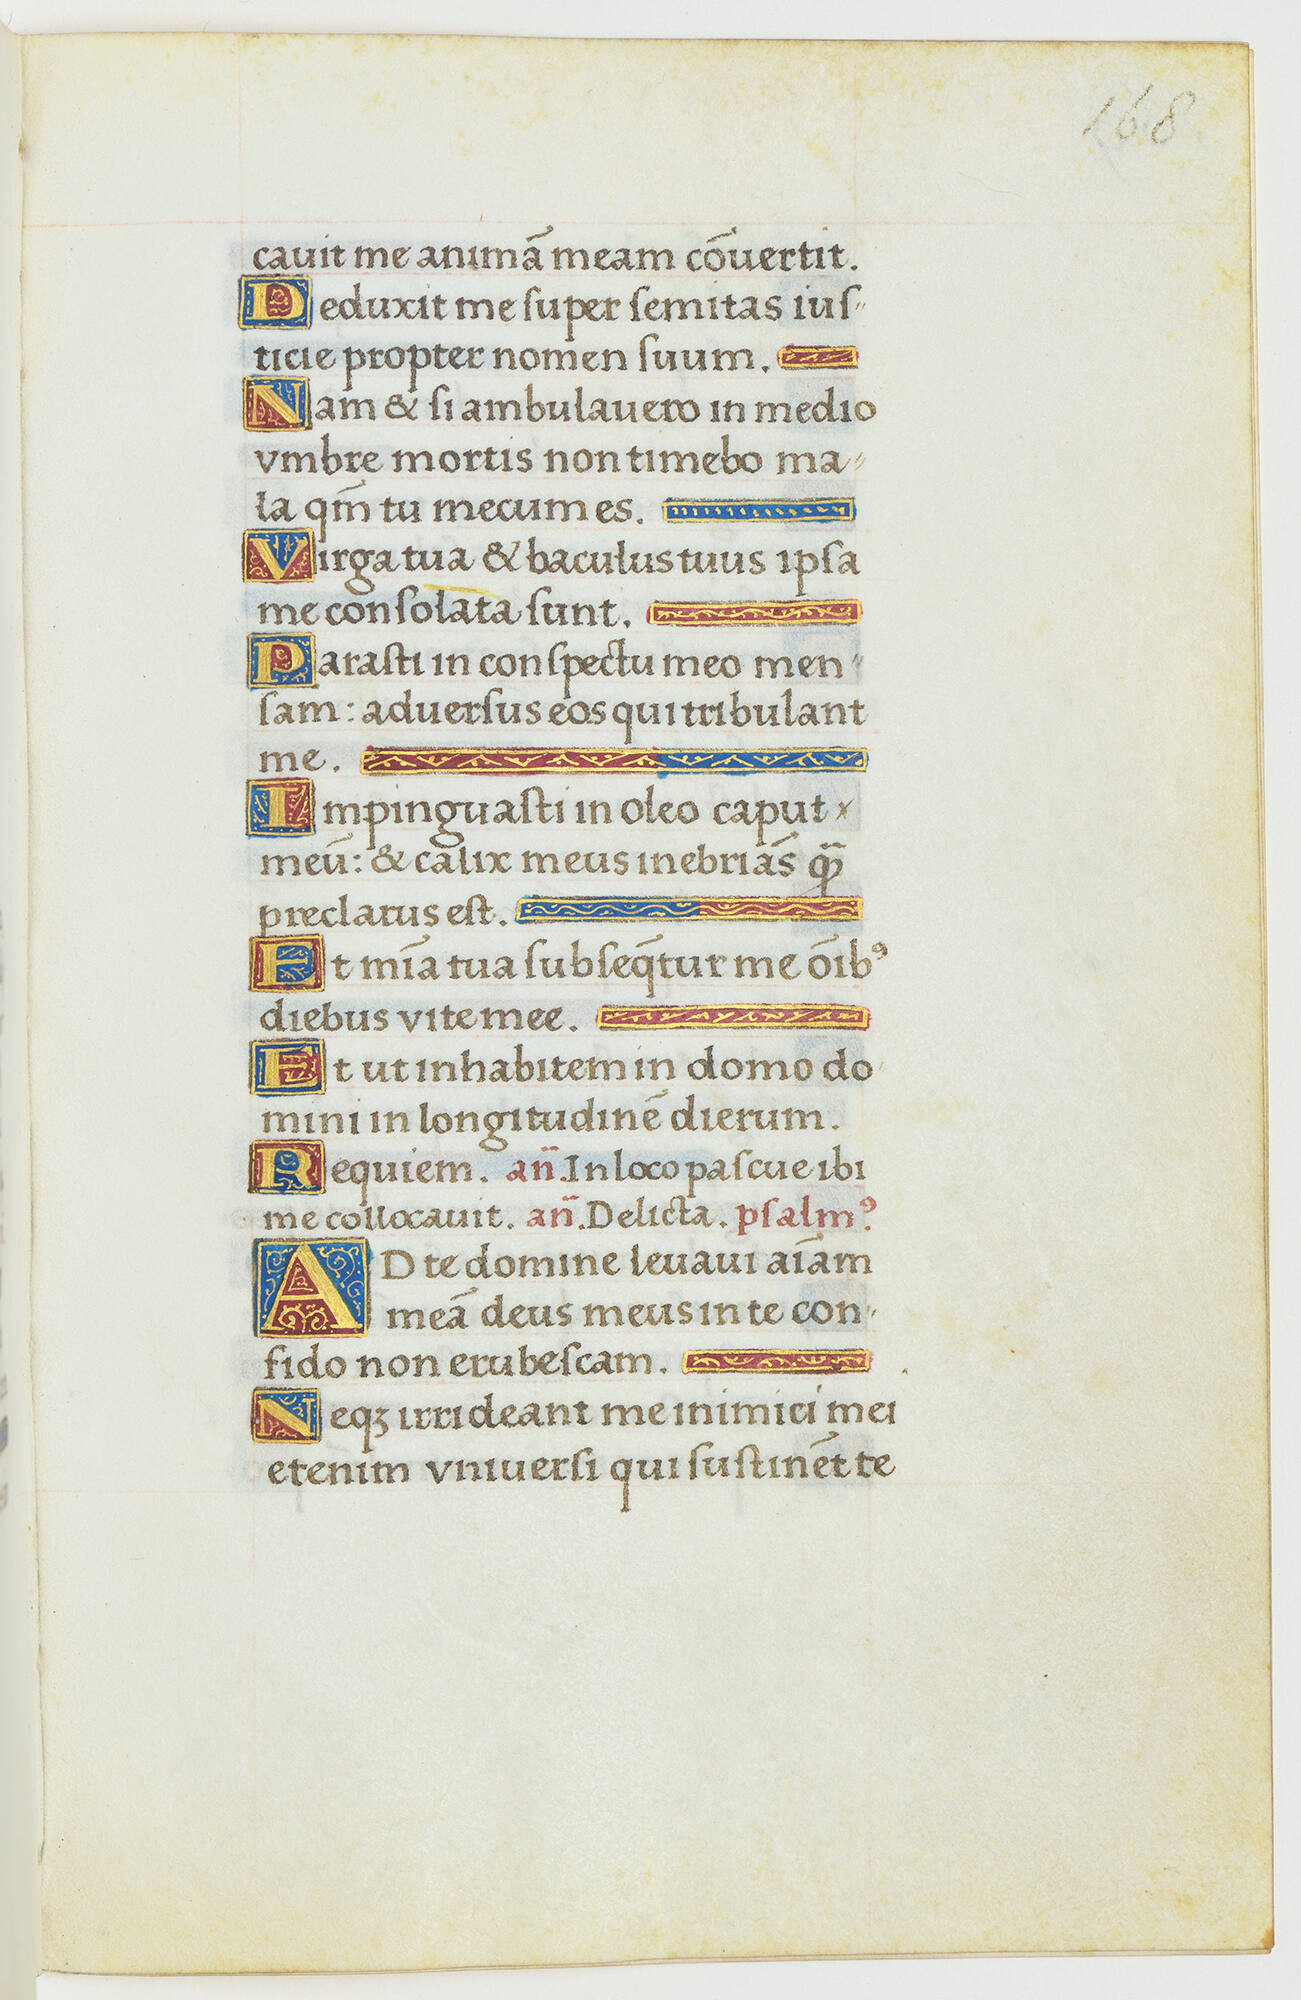 168
cauit me animā meam cōuertit.
Deduxit me super semitas ius-
ticie propter nomen suum.
Nam & si ambulauero in medio
vmbre mortis non timebo ma-
la qm̄ tu mecum es.
Virga tua & baculus tuus ipsa
me consolata sunt.
Parasti in conspectu meo men-
sam: aduersus eos qui tribulant
me.
Impinguasti in oleo caput
meū: & calix meus inebriās q̄
preclarus est.
Et mīa tua subseq̄tur me oībꝰ
diebus vite mee.
Et ut inhabitem in domo do
mini in longitudinē dierum.
Requiem. an̄. In loco pascue ibi
me collocauit. an̄. Delicta. psalmꝰ
AD te domine leuaui aīam
meā deus meus in te con-
fido non erubescam.
Neqꝫ irrideant me inimici mei
etenim vniuersi qui sustinēt te